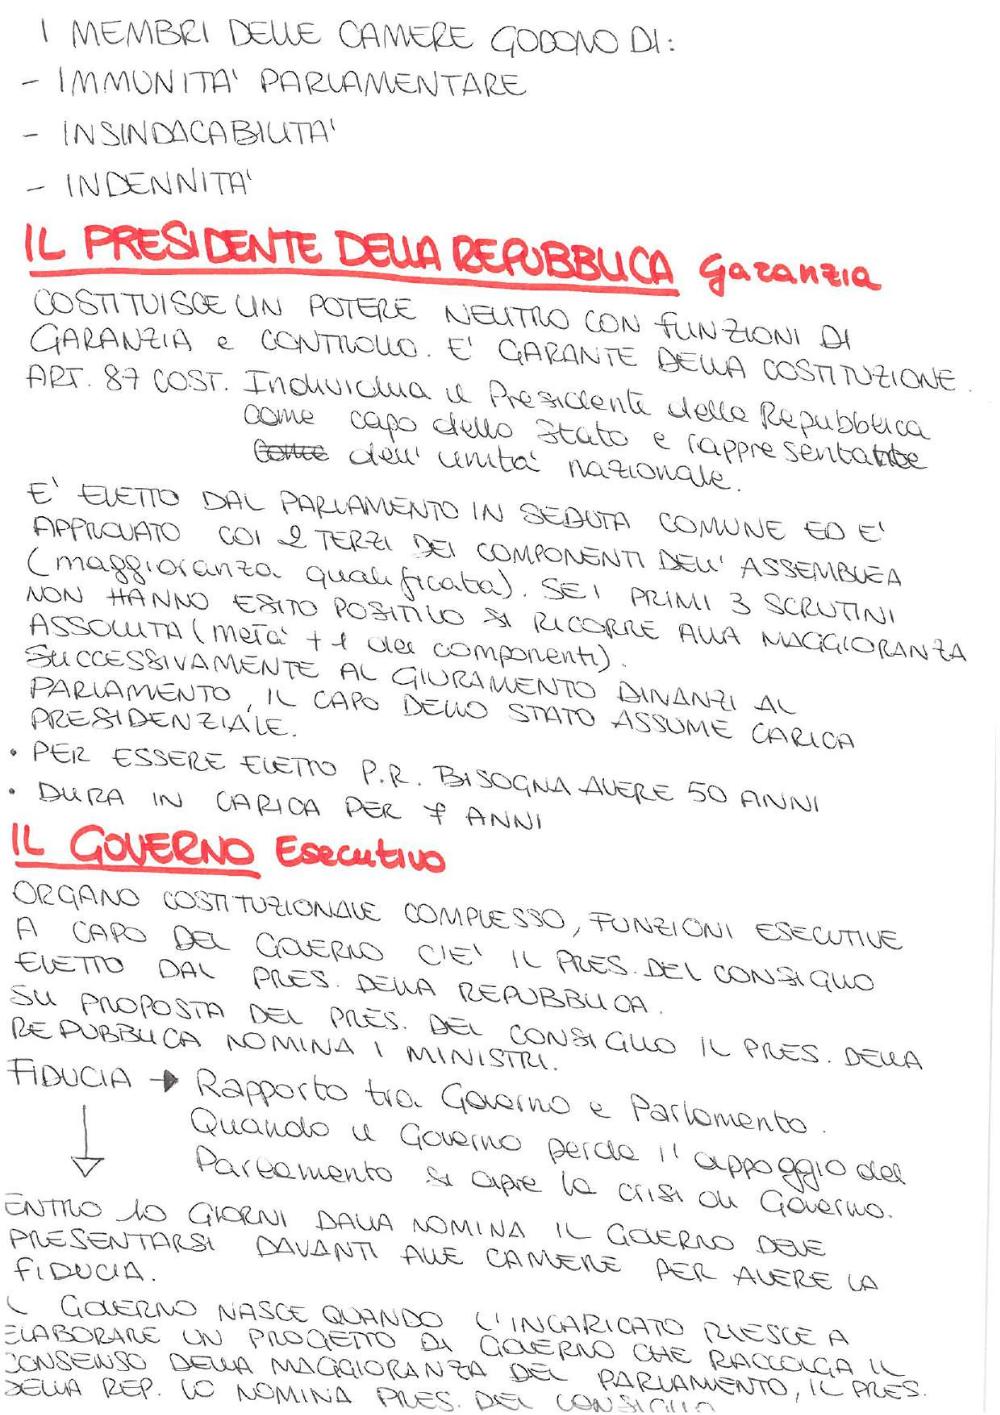 I MEMBRI DELLE CAMERE GODONO DI:
- IMMUNITA' PARLAMENTARE
- INSINDACABILITA'
- INDENNITA'
IL PRESIDENTE DELLA REPUBBLICA Garanzia
COSTITUISCE UN POTERE NEUTRO CON FUNZIONI DI
GARANZIA e CONTROLLO. E' GARANTE DELLA COSTITUZIONE.
ART. 87 COST. Individua il Presidente della Repubblica
come capo dello Stato e rappresentante
dell'unita' nazionale.
E' ELETTO DAL PARLAMENTO IN SEDUTA COMUNE ED E'
APPROVATO COI 2 TERZI DEI COMPONENTI DELL'ASSEMBLEA
(maggioranza qualificata). SE I PRIMI 3 SCRUTINI
NON HANNO ESITO POSITIVO SI RICORRE ALLA MAGGIORANZA
ASSOLUTA (metà +1 dei componenti).
SUCCESSIVAMENTE AL GIURAMENTO DINANZI AL
PARLAMENTO, IL CAPO DELLO STATO ASSUME CARICA
PRESIDENZIALE.
• PER ESSERE ELETTO P.R. BISOGNA AVERE 50 ANNI
• DURA IN CARICA PER 7 ANNI
IL GOVERNO Esecutivo
ORGANO COSTITUZIONALE COMPLESSO, FUNZIONI ESECUTIVE
A CAPO DEL GOVERNO C'E' IL PRES. DEL CONSIGLIO
ELETTO DAL PRES. DELLA REPUBBLICA.
SU PROPOSTA DEL PRES. DEL CONSIGLIO IL PRES. DELLA
REPUBBLICA NOMINA I MINISTRI.
FIDUCIA → Rapporto tra Governo e Parlamento.
Quando il Governo perde l'appoggio del
Parlamento si apre la crisi di Governo.
ENTRO 10 GIORNI DALLA NOMINA IL GOVERNO DEVE
PRESENTARSI DAVANTI ALLE CAMERE PER AVERE LA
FIDUCIA.
L GOVERNO NASCE QUANDO L'INCARICATO RIESCE A
ELABORARE UN PROGETTO DI GOVERNO CHE RACCOLGA IL
CONSENSO DELLA MAGGIORANZA DEL PARLAMENTO, IL PRES.
DELLA REP. LO NOMINA PRES. DEL CONSIGLIO